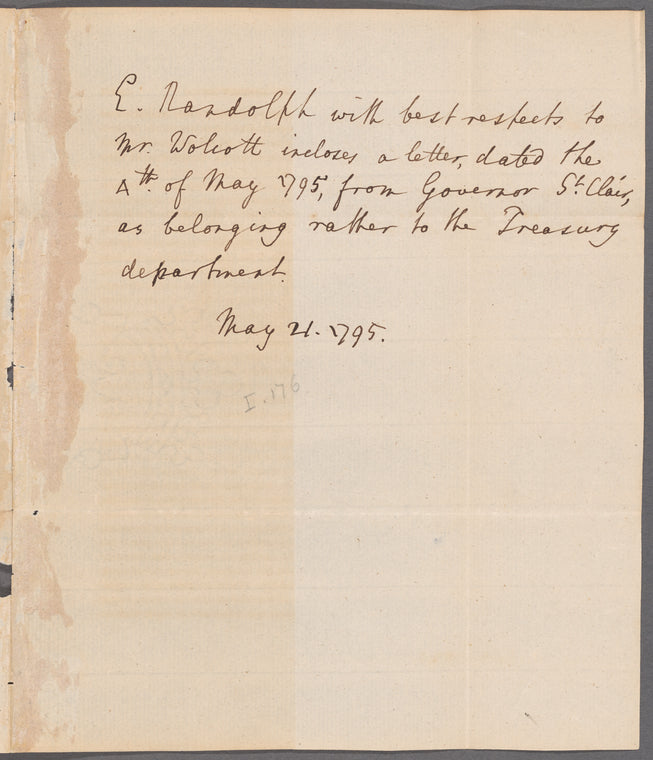 E. Randolph with best respects to
Mr. Wolcott incloses a letter, dated the
4th. of May 1795, from Governor St. Clair,
as belonging rather to the Treasury
department.
May 21. 1795.
I. 176